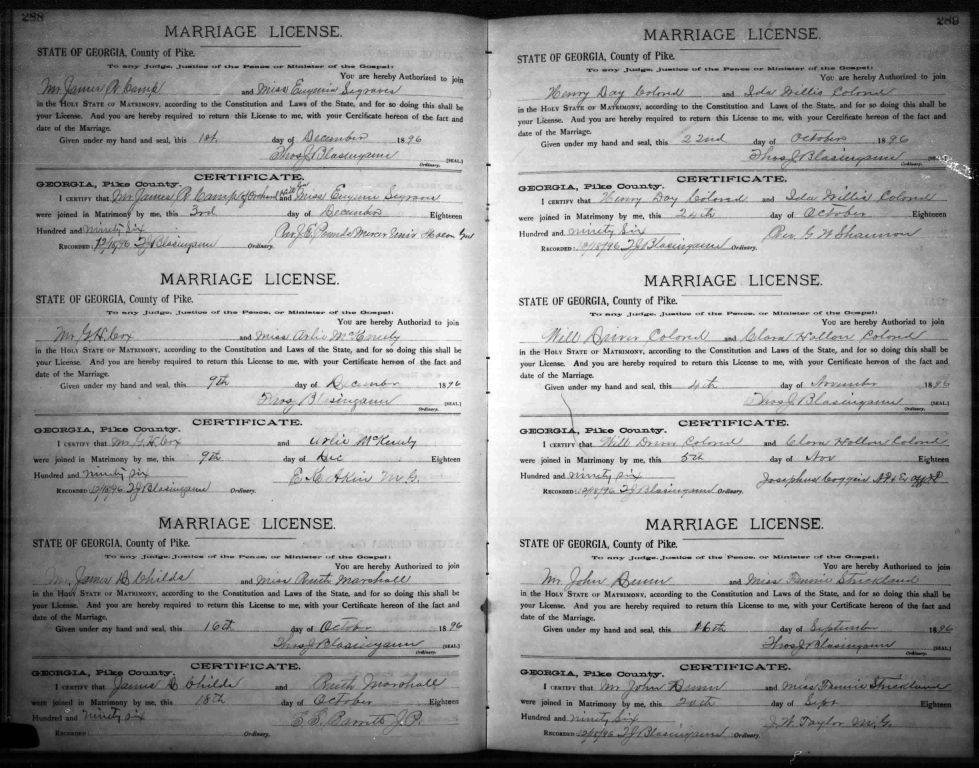 288
MARRIAGE LICENSE.
STATE OF GEORGIA, County of Pike.
To any Judge, Justice of the Peace or Minister of the Gospel:
You are hereby Authorized to join
Mr James R Camp and Miss Eugenia Segraves
in the HOLY STATE OF MATRIMONY, according to the Constitution and Laws of the State, and for so doing this shall be
your License. And you are hereby required to return this License to me, with your Certificate hereon of the fact and
date of the Marriage.
Given under my hand and seal, this 1st day of December 1896
Thos J Blasingame [SEAL]
Ordinary.
CERTIFICATE.
GEORGIA, Pike County.
I CERTIFY that Mr James R Camp of and Miss Eugenia Segraves
were joined in Matrimony by me, this 3rd day of December Eighteen
Hundred and ninety six Rev J E Mercer Macon
RECORDED 12/18/96 T J Blasingame
MARRIAGE LICENSE.
STATE OF GEORGIA, County of Pike.
To any Judge, Justice of the Peace, or Minister of the Gospel:
You are hereby Authorized to join
Mr G H Cox and Miss Arlie McKneely
in the HOLY STATE OF MATRIMONY, according to the Constitution and Laws of the State, and for so doing this shall be
your License. And you are hereby required to return this License to me, with your Certificate hereon of the fact and
date of the Marriage.
Given under my hand and seal, this 9th day of December 1896
Thos J Blasingame [SEAL]
Ordinary.
CERTIFICATE.
GEORGIA, Pike County.
I CERTIFY that Mr G H Cox and Arlie
were joined in Matrimony by me, this 9th day of Dec Eighteen
Hundred and ninety six E M Akin M G.
RECORDED 12/18/96 T J Blasingame Ordinary.
MARRIAGE LICENSE.
STATE OF GEORGIA, County of Pike.
To any Judge, Justice of the Peace, or Minister of the Gospel:
You are hereby Authorized to join
Mr James B Childs and Miss Ruth Marshall
in the HOLY STATE OF MATRIMONY, according to the Constitution and Laws of the State, and for so doing this shall be
your License. And you are hereby required to return this License to me, with your Certificate hereon of the fact and
date of the Marriage.
Given under my hand and seal, this 16th day of October 1896
Thos J Blasingame [SEAL]
Ordinary.
CERTIFICATE.
GEORGIA, Pike County.
I CERTIFY that James B Childs and Ruth Marshall
were joined in Matrimony by me, this 18th day of October Eighteen
Hundred and ninety six E E J. P.
RECORDED Ordinary.
289
MARRIAGE LICENSE.
STATE OF GEORGIA, County of Pike.
To any Judge, Justice of the Peace or Minister of the Gospel:
You are hereby Authorized to join
Henry Day Colord and Ida Willis Colord
in the HOLY STATE OF MATRIMONY, according to the Constitution and Laws of the State, and for so doing this shall be
your License. And you are hereby required to return this License to me, with your Certificate hereon of the fact and
date of the Marriage.
Given under my hand and seal, this 22nd day of October 1896
Thos J Blasingame
Ordinary.
CERTIFICATE.
GEORGIA, Pike County.
I CERTIFY that Henry Day Colord and Ida Willis Colord
were joined in Matrimony by me, this 24th day of October Eighteen
Hundred and ninety six Rev G W Shannon
RECORDED 12/18/96 T J Blasingame Ordinary.
MARRIAGE LICENSE.
STATE OF GEORGIA, County of Pike.
To any Judge, Justice of the Peace, or Minister of the Gospel:
You are hereby Authorized to join
Will Colord and Clora Colord
in the HOLY STATE OF MATRIMONY, according to the Constitution and Laws of the State, and for so doing this shall be
your License. And you are hereby required to return this License to me, with your Certificate hereon of the fact and
date of the Marriage.
Given under my hand and seal, this 4th day of November 1896
Thos J Blasingame [SEAL]
Ordinary.
CERTIFICATE.
GEORGIA, Pike County.
I CERTIFY that Will Colord and Clora Colord
were joined in Matrimony by me, this 5th day of Nov Eighteen
Hundred and ninety six Josephus Coggin
RECORDED 12/18/96 T J Blasingame Ordinary
MARRIAGE LICENSE.
STATE OF GEORGIA, County of Pike.
To any Judge, Justice of the Peace, or Minister of the Gospel:
You are hereby Authorized to join
Mr John Dunn and Miss Fannie Strickland
in the HOLY STATE OF MATRIMONY, according to the Constitution and Laws of the State, and for so doing this shall be
your License. And you are hereby required to return this License to me, with your Certificate hereon of the fact and
date of the Marriage.
Given under my hand and seal, this 16th day of September 1896
Thos J Blasingame [SEAL]
Ordinary.
CERTIFICATE.
GEORGIA, Pike County.
I CERTIFY that Mr John Dunn and Miss Fannie Strickland
were joined in Matrimony by me, this 20th day of Sept Eighteen
Hundred and ninety six J W Taylor M. G.
RECORDED 12/18/96 T J Blasingame Ordinary.